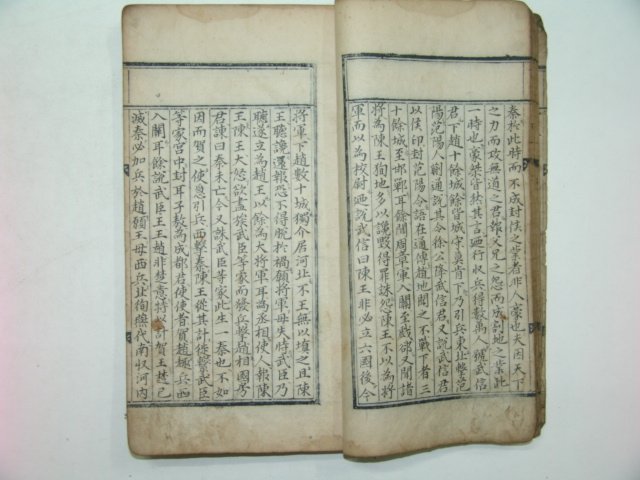 秦於此時而不成封侯之業者非人豪也夫因天下
之力而攻無道之君報父兄之怨而成割地之業此
一時也豪桀皆然其言迺行收兵得數萬人號武信
君下趙十餘城餘皆城守莫肯下乃引兵東北擊范
陽范陽人蒯通說其令徐公降武信君又說武信君
以侯印封范陽令語在通傳趙地聞之不戰下者三
十餘城至邯鄲耳餘聞周章軍入關至戲卻又聞諸
將為陳王徇地多以讒毀得罪誅怨陳王不以為將
軍而以為校尉迺說武信曰陳王非必立六國後今
將軍下趙數十城獨介居河北不王無以填之且陳
王聽讒還報恐不得脫於禍願將軍毋失時武臣乃
聽遂立為趙王以餘為大將軍耳為丞相使人報陳
王陳王大怒欲盡族武臣等家而發兵擊趙相國房
君諫曰秦未亡今又誅武臣等家此生一秦也不如
因而賀之使急引兵西擊秦陳王從其計徙繫武臣
等家宮中封耳子敖為成都君使使者賀趙趣兵西
入關耳餘說武臣王王趙非楚意特以計賀王楚已
滅秦必加兵於趙願王毋西兵北徇燕代南收河內